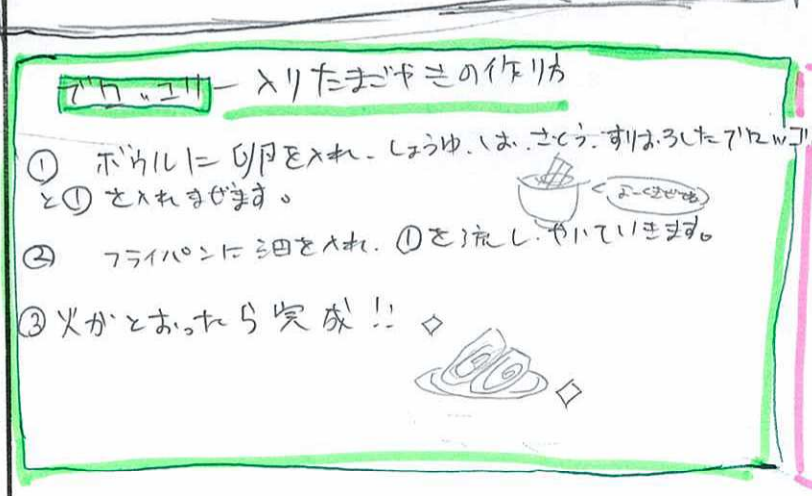 ブロッコリー入りたまごやきの作り方
① ボウルに卵を入れ、しょうゆ、しお、さとう、すりおろしたブロッコリ
と①を入れまぜます。
よーくまぜてね
② フライパンに油を入れ、①を流し、やいていきます。
③火がとおったら完成!!